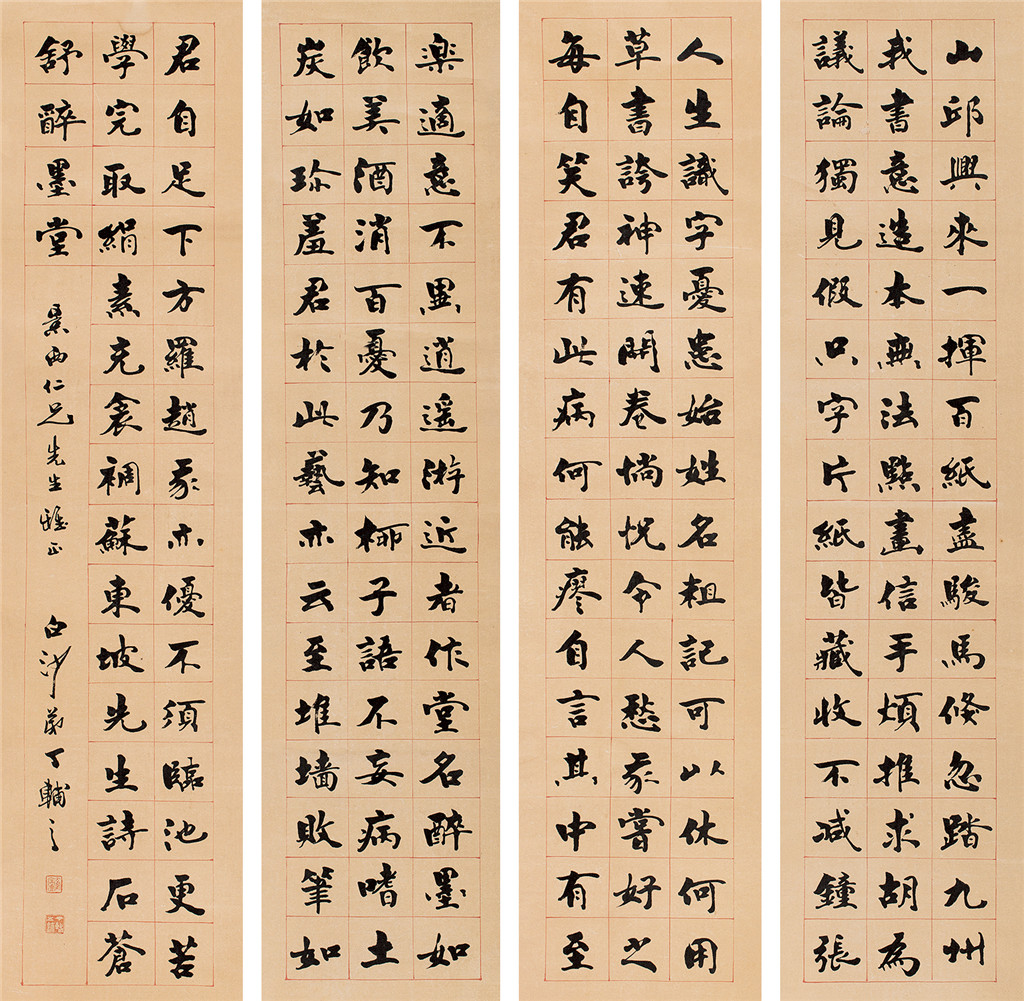 山邱興來一揮百紙盡駿馬倏忽踏九州
我書意造本無法點畫信手煩推求胡為
議論獨見假只字片紙皆藏收不減鐘張
人生識字憂患始姓名粗記可以休何用
草書誇神速開卷惝怳令人愁我嘗好之
每自笑君有此病何能瘳自言其中有至
樂適意不異逍遥游近者作堂名醉墨如
飲美酒消百憂乃知柳子語不妄病嗜土
炭如珍羞君於此藝亦云至堆墙敗筆如
君自足下方羅趙我亦優不須臨池更苦
學完取絹素充衾裯蘇東坡先生詩石蒼
舒醉墨堂 景西仁兄先生雅正 白沙丁輔之